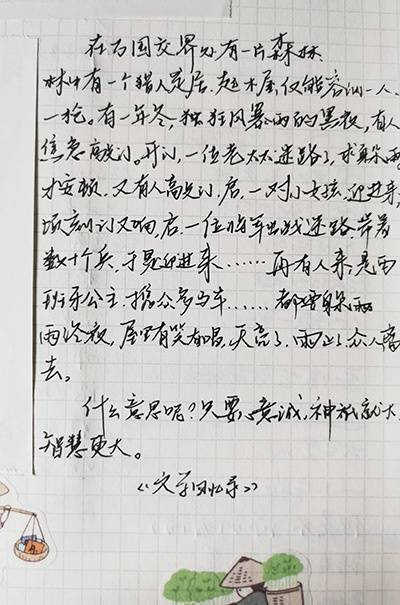 在石国交界处有一片森林
林中有一个猎人定居，起木屋，仅能容纳一人、
一枪。有一年冬，狂风暴雨的黑夜，有人
焦急敲门。开门，一位老太太迷路了，求躲雨。
才安顿，又有人高声门，启，一对小女孩，迎进来，
顷刻门又响，启，一位将军出战迷路，带着
数十个兵，于是迎进来……再有人来，是西
班牙公主，携众多马车……都要躲雨
雨冬夜，屋里有笑有唱，天亮了，雨止了，众人离
去。
什么意思呢？只要心意诚，神祇就大，
智慧更大。
《文学回忆录》